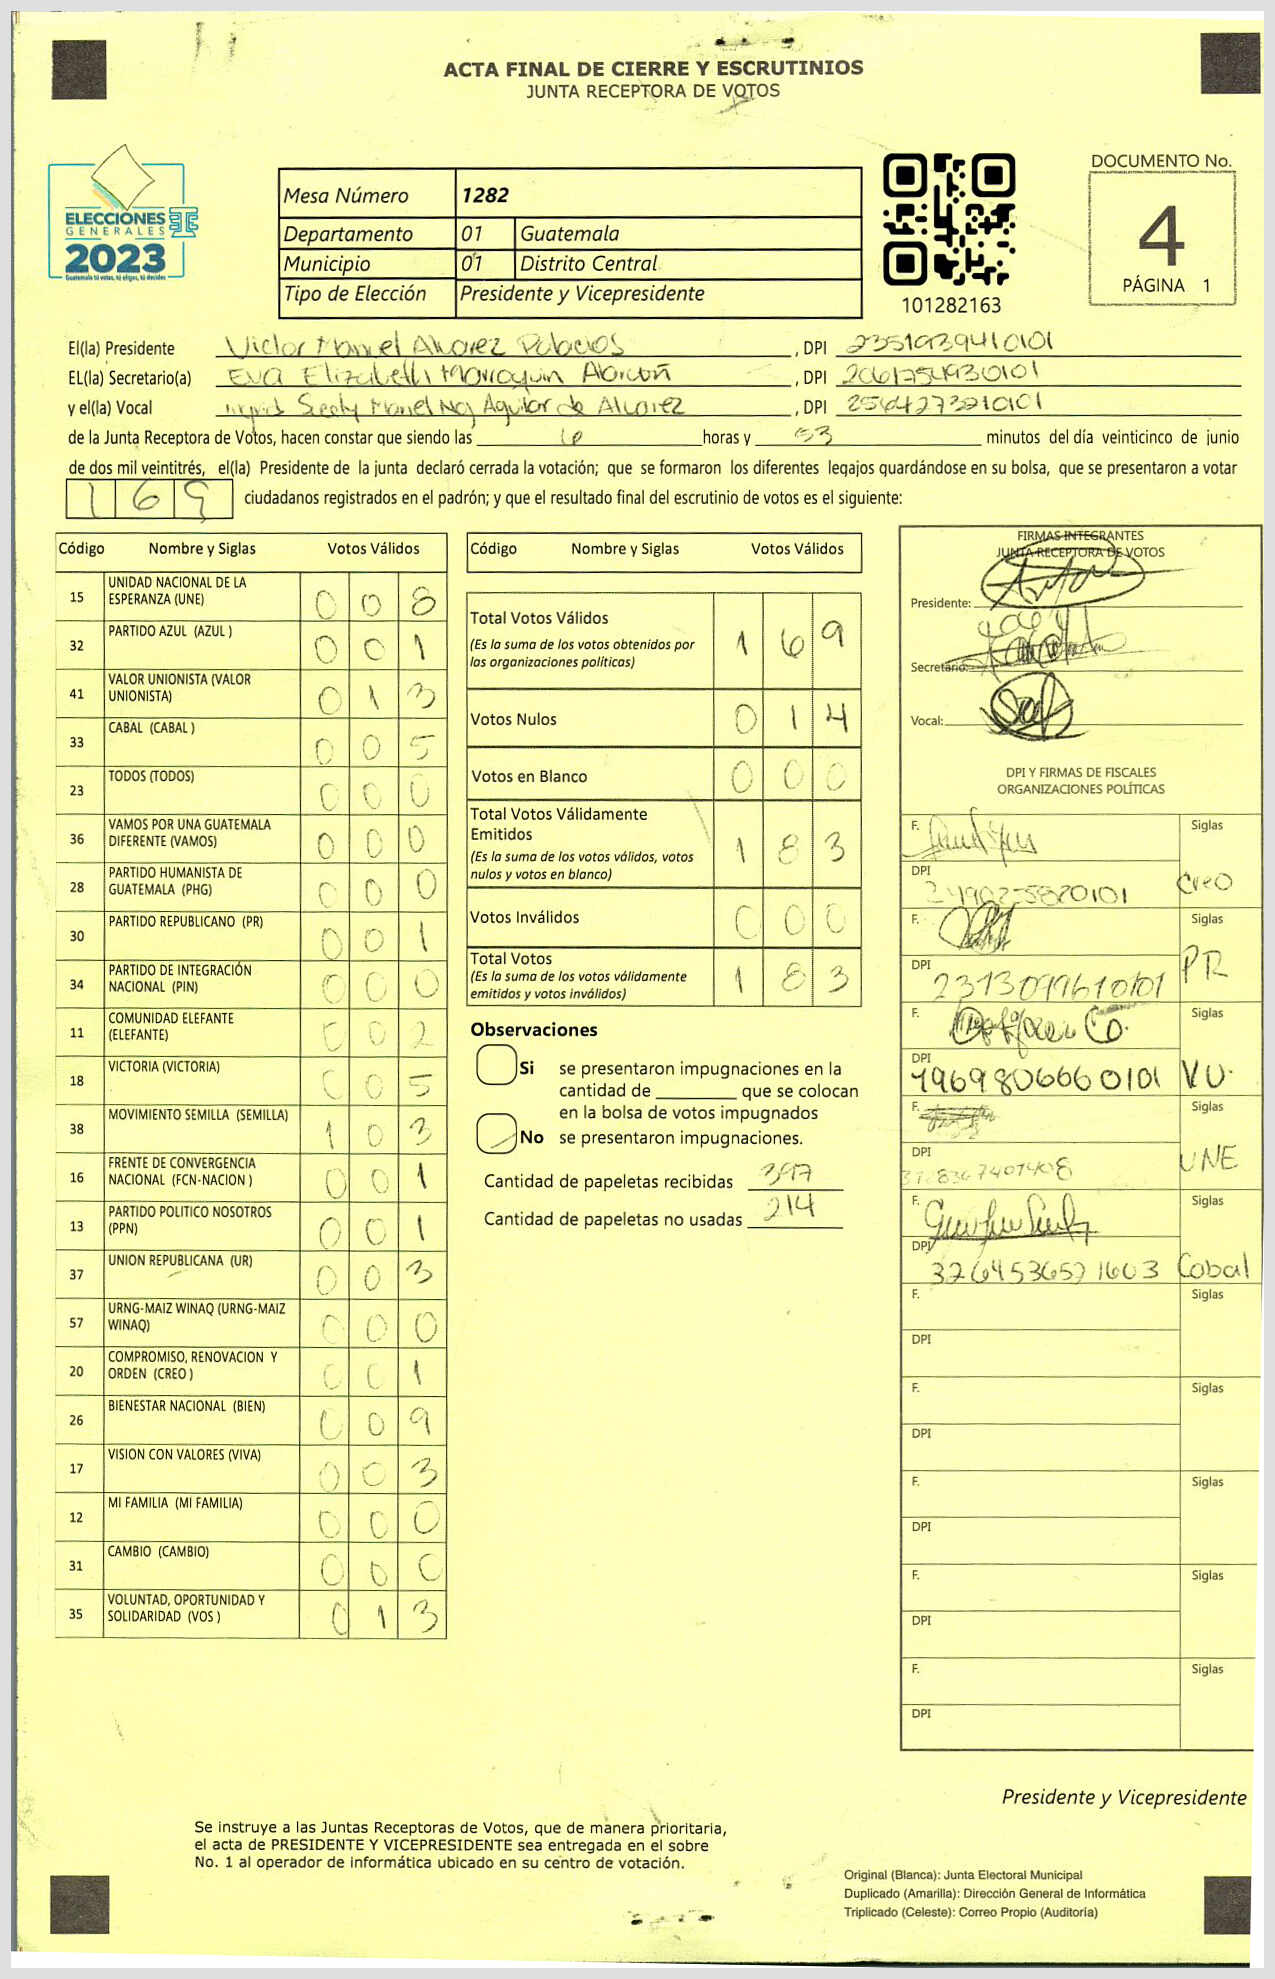 ACTA FINAL DE CIERRE Y ESCRUTINIOS
JUNTA RECEPTORA DE VOTOS
ELECCIONES
GENERALES
2023
Guatemala tú votas, tú eliges, tú decides
Mesa Número 1282
Departamento 01 Guatemala
Municipio 01 Distrito Central
Tipo de Elección Presidente y Vicepresidente
101282163
DOCUMENTO No.
4
PÁGINA 1
El(la) Presidente Victor Manuel Alvarez Palacios, DPI 2351939410101
EL(la) Secretario(a) Eva Elizabeth Marroquin Alarcon, DPI 2061754930101
y el(la) Vocal Aguilar de Alvarez, DPI
de la Junta Receptora de Votos, hacen constar que siendo las horas y 53 minutos del día veinticinco de junio
de dos mil veintitrés, el(la) Presidente de la junta declaró cerrada la votación; que se formaron los diferentes legajos quardándose en su bolsa, que se presentaron a votar
169 ciudadanos registrados en el padrón; y que el resultado final del escrutinio de votos es el siguiente:
Código Nombre y Siglas Votos Válidos
15 UNIDAD NACIONAL DE LA ESPERANZA (UNE) 0 0 8
32 PARTIDO AZUL (AZUL ) 0 0 1
41 VALOR UNIONISTA (VALOR UNIONISTA) 0 1 3
33 CABAL (CABAL ) 0 0 5
23 TODOS (TODOS) 0 0 0
36 VAMOS POR UNA GUATEMALA DIFERENTE (VAMOS) 0 0 0
28 PARTIDO HUMANISTA DE GUATEMALA (PHG) 0 0 0
30 PARTIDO REPUBLICANO (PR) 0 0 1
34 PARTIDO DE INTEGRACIÓN NACIONAL (PIN) 0 0 0
11 COMUNIDAD ELEFANTE (ELEFANTE) 0 0 2
18 VICTORIA (VICTORIA) 0 0 5
38 MOVIMIENTO SEMILLA (SEMILLA) 1 0 3
16 FRENTE DE CONVERGENCIA NACIONAL (FCN-NACION ) 0 0 1
13 PARTIDO POLITICO NOSOTROS (PPN) 0 0 1
37 UNION REPUBLICANA (UR) 0 0 3
57 URNG-MAIZ WINAQ (URNG-MAIZ WINAQ) 0 0 0
20 COMPROMISO, RENOVACION Y ORDEN (CREO ) 0 0 1
26 BIENESTAR NACIONAL (BIEN) 0 0 9
17 VISION CON VALORES (VIVA) 0 0 3
12 MI FAMILIA (MI FAMILIA) 0 0 0
31 CAMBIO (CAMBIO) 0 0 0
35 VOLUNTAD, OPORTUNIDAD Y SOLIDARIDAD (VOS ) 0 1 3
Código Nombre y Siglas Votos Válidos
Total Votos Válidos 1 6 9
(Es la suma de los votos obtenidos por
las organizaciones políticas)
Votos Nulos 0 1 4
Votos en Blanco 0 0 0
Total Votos Válidamente
Emitidos 1 8 3
(Es la suma de los votos válidos, votos
nulos y votos en blanco)
Votos Inválidos 0 0 0
Total Votos 1 8 3
(Es la suma de los votos válidamente
emitidos y votos inválidos)
Observaciones
Si se presentaron impugnaciones en la
cantidad de ________ que se colocan
en la bolsa de votos impugnados
No se presentaron impugnaciones.
Cantidad de papeletas recibidas 397
Cantidad de papeletas no usadas 214
FIRMAS INTEGRANTES
JUNTA RECEPTORA DE VOTOS
Presidente:
Secretario:
Vocal:
DPI Y FIRMAS DE FISCALES
ORGANIZACIONES POLÍTICAS
F. Siglas
DPI Creo
2490255820101
F. Siglas
DPI PR
F. Siglas
DPI VU.
1969806660101
F. Siglas
DPI UNE
F. Siglas
DPI
3264536571603 Cabal
F. Siglas
DPI
F. Siglas
DPI
F. Siglas
DPI
F. Siglas
DPI
F. Siglas
DPI
Presidente y Vicepresidente
Se instruye a las Juntas Receptoras de Votos, que de manera prioritaria,
el acta de PRESIDENTE Y VICEPRESIDENTE sea entregada en el sobre
No. 1 al operador de informática ubicado en su centro de votación.
Original (Blanca): Junta Electoral Municipal
Duplicado (Amarilla): Dirección General de Informática
Triplicado (Celeste): Correo Propio (Auditoría)